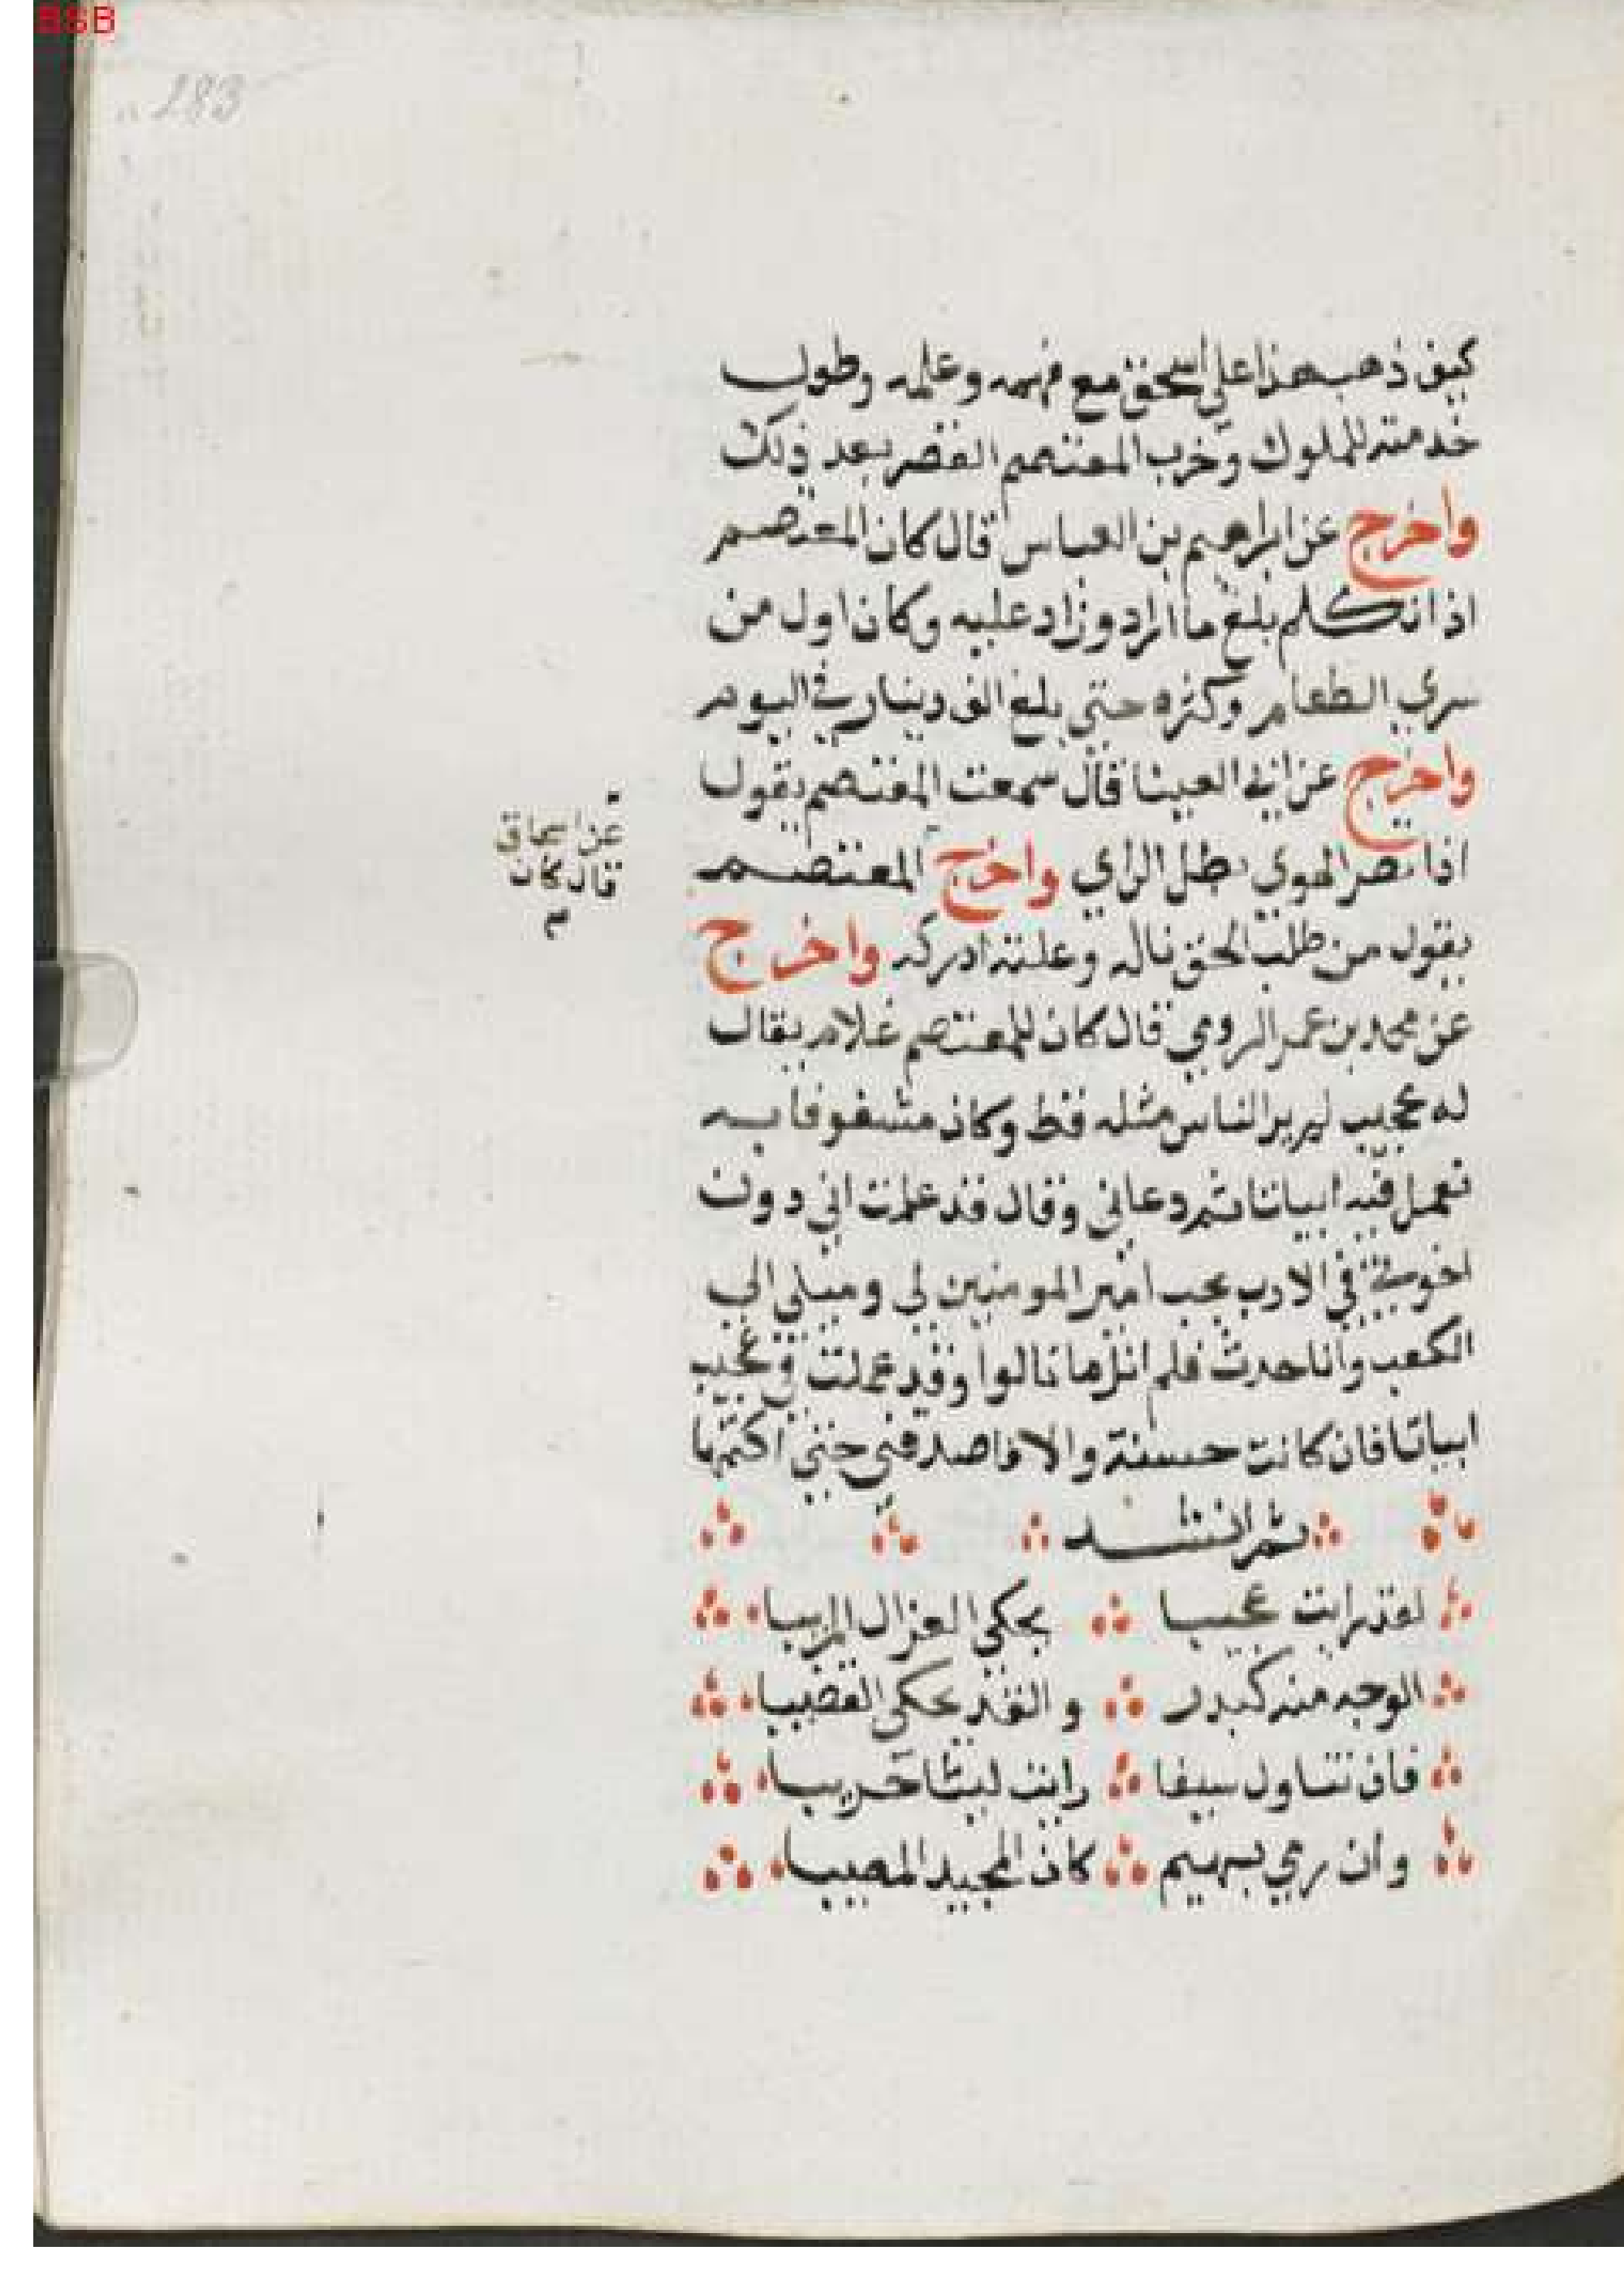 BSB
183
كيف ذهب هذا على اسحق مع فهمه وعلمه وطول
خدمته للملوك وخرب المعتصم القصر بعد ذلك
واخرج عن ابراهيم بن العباس قال كان المعتصم
اذا تكلم بلغ ما اراد وزاد عليه وكان اول من
سري الطعام وكثره حتى بلغ الف دينار في اليوم
واخرج عن ابي العيثا قال سمعت المعتصم يقول
اذا نصر الهوي بطل الراي واخرج المعتصم
عن اسحاق
قال كان
يقول من طلب الحق بماله وعلته ادركه واخرج
عن محمد بن عمر الرومي قال كان للمعتصم غلام يقال
له عجيب لم ير الناس مثله قط وكان مشغوفا به
فعمل فيه ابياتا ثم دعاني وقال قد علمت اني دون
اخوتي في الادب بحب امير المومنين لي وميلي الي
الكعب وانا حدث فلم انل ما نالوا وقد عملت في عجيب
ابياتا فان كانت حسنة والا فاصدقني حتى اكتمها
ثم انشد
لقد رايت عجيبا يحكي الغزال الربيبا
الوجه منه كبدر والقد يحكي القضيبا
فان تناول سيفا رايت ليثا حريبا
وان رمي بسهم كان المجيد المصيبا